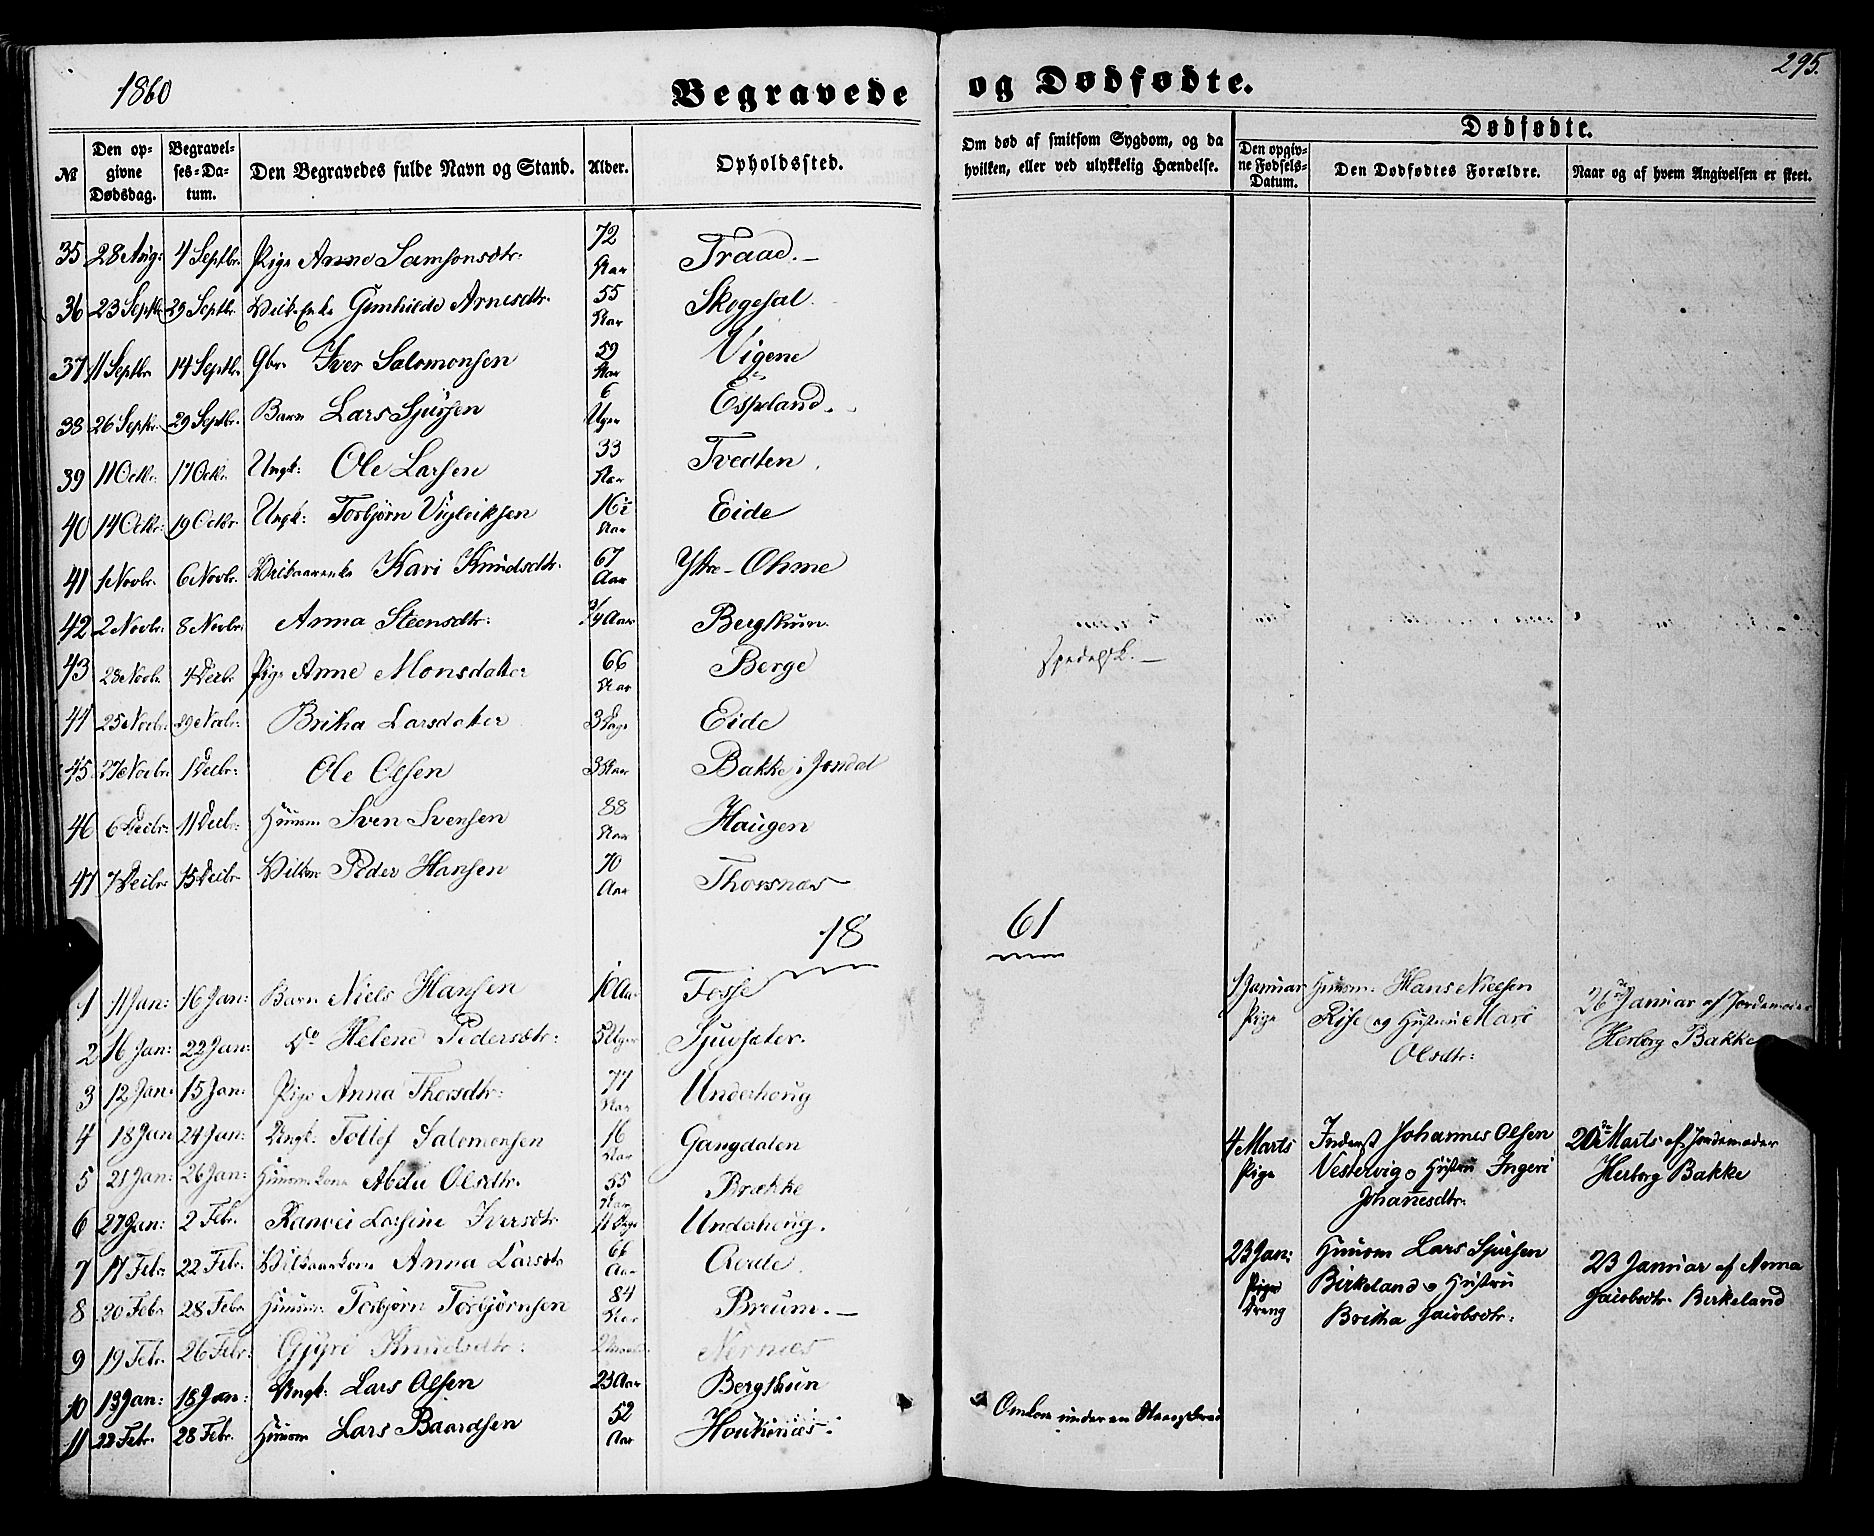 1860
Begravede og Dødfødte.
295.
№
Den opgivne Dødsdag.
Begravelses-Datum.
Den Begravedes fulde Navn og Stand.
Alder.
Opholdssted.
Om død af smitsom Sygdom, og da hvilken, eller ved ulykkelig Hændelse.
Dødfødte.
Den opgivne Fødsels-Datum.
Den Dødfødtes Forældre.
Naar og af hvem Angivelsen er skeet.
35 28 Aug: 4 Septbr. Pige Anne Samsonsdtr. 72 Aar Traad.
36 23 Septbr 29 Septbr. Gunhilde Arnesdtr. 55 Aar Skogesal.
37 11 Septbr 14 Septbr. Gbr. Iver Salomonsen 59 Aar Vigene
38 26 Septbr. 29 Septbr. Barn Lars Sjursen 6 Uger Espeland.
39 11 Octbr. 17 Octbr. Ungk: Ole Larsen 33 Aar Tvedten.
40 14 Octbr. 19 Octbr Ungk: Torbjørn Vigleiksen 16 Aar Eide
41 1 Novbr. 6 Novbr. Kari Knudsdtr. 67 Aar Ytre-Ohme
42 2 Novbr. 8 Novbr. Anna Steensdtr: 3/4 Aar Bergstuun.
43 28 Novbr. 4 Decbr Pige Anne Monsdatter 66 Aar Berge
spedalsk.
44 25 Novbr. 29 Novbr. Britha Larsdatter 3 Dage Eide
45 27 Novbr. 1 Decbr: Ole Olsen 3 Aar Bakke i Jondal
46 6 Decbr. 11 Decbr: Huusm Sven Svensen 88 Aar Haugen
47 7 Decbr. 15 Decbr Peder Hansen 70 Aar Thorsnæs
18 61
1 11 Jan: 16 Jan: Barn Niels Hansen 10 Aar Fosse
2 16 Jan: 22 Jan: Do Helene Pedersdtr: 5 Uger Sjusæter.
3 12 Jan: 15 Jan: Pige Anna Thorsdtr: 77 Aar Underhoug
4 18 Jan 24 Jan: Ungk: Tollef Salomonsen 16 Aar Gangdalen
5 21 Jan: 26 Jan: Huusm.kone Abelu Olsdtr. 55 Aar Brække
6 27 Jan: 2 Febr. Ranvei Larsine Iversdtr 11 Dage Underhoug.
7 17 Febr. 22 Febr. Anna Larsdtr 66 Aar
8 20 Febr 28 Febr Huusm: Torbjørn Torbjørnsen 84 Aar Breum.
9 19 Febr. 26 Febr: Gjyri Knudsdtr: Nernes
10 13 Jan: 18 Jan: Ungk: Lars Olsen 23 Aar Bergstuun
Omkom under en
11 22 Febr. 28 Febr. Huusm Lars Baardsen 52 Aar
1 Januar Pige
Huusm: Hans Nielsen
Rise og Hustru Mari
Olsdtr:
26 Januar af Jordemoder
Herborg Bakke
4 Marts Pige
Inderst Johannes Olsen
Vestervig o Hustru Ingeri
Johanesdtr.
20 Marts af Jordemoder
Herborg Bakke
23 Jan: Pige Dreng
Huusm Lars Sjursen
Birkeland o Hustru
Britha Jacobsdtr.
23 Januar af Anna
Jacobsdtr. Birkeland